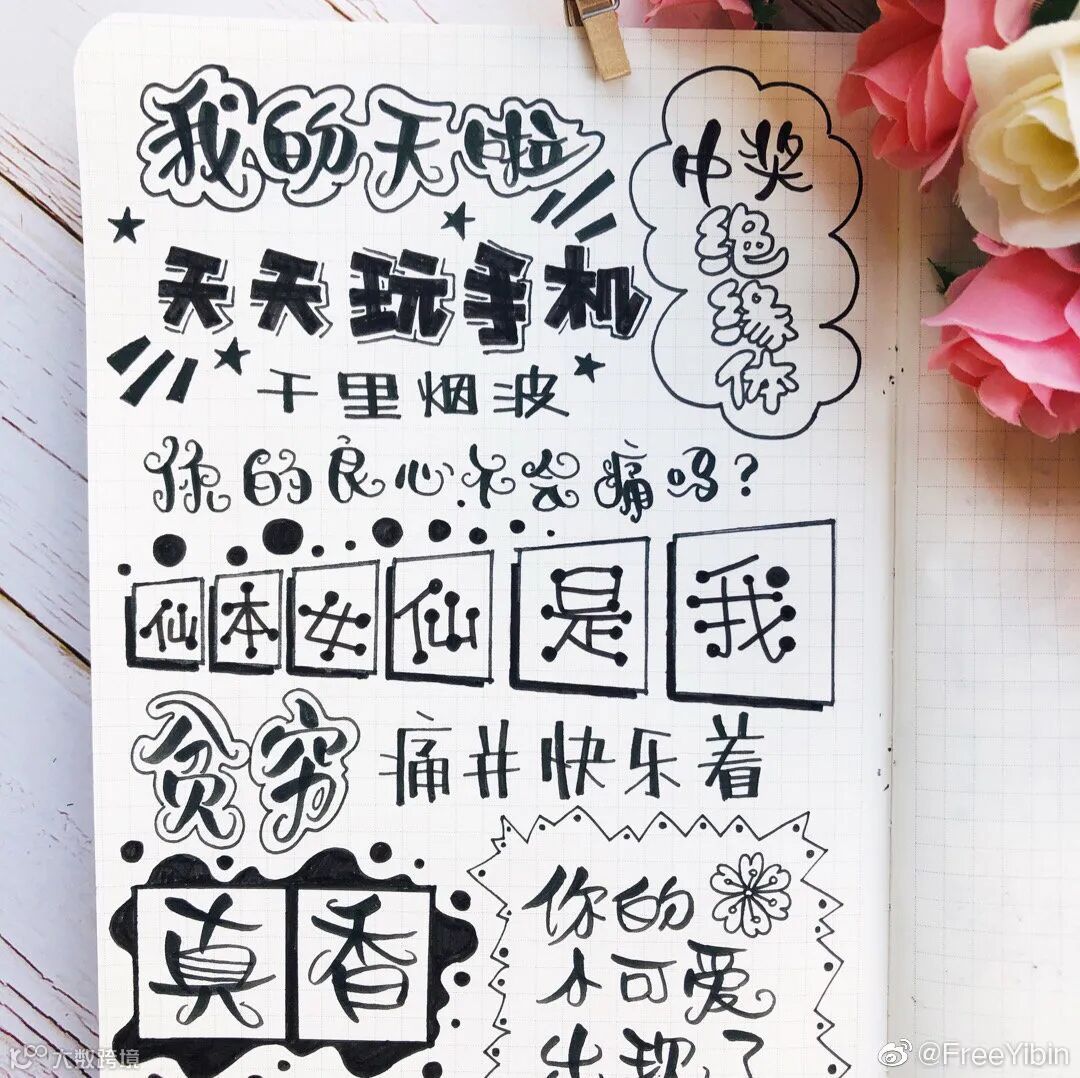 我的天啦
中奖
绝
缘
体
天天玩手机
千里烟波
你的良心不会痛吗？
仙本女仙是我
贫穷 痛并快乐着
真香
你的
小可爱
出现了
大数跨境
@FreeYibin